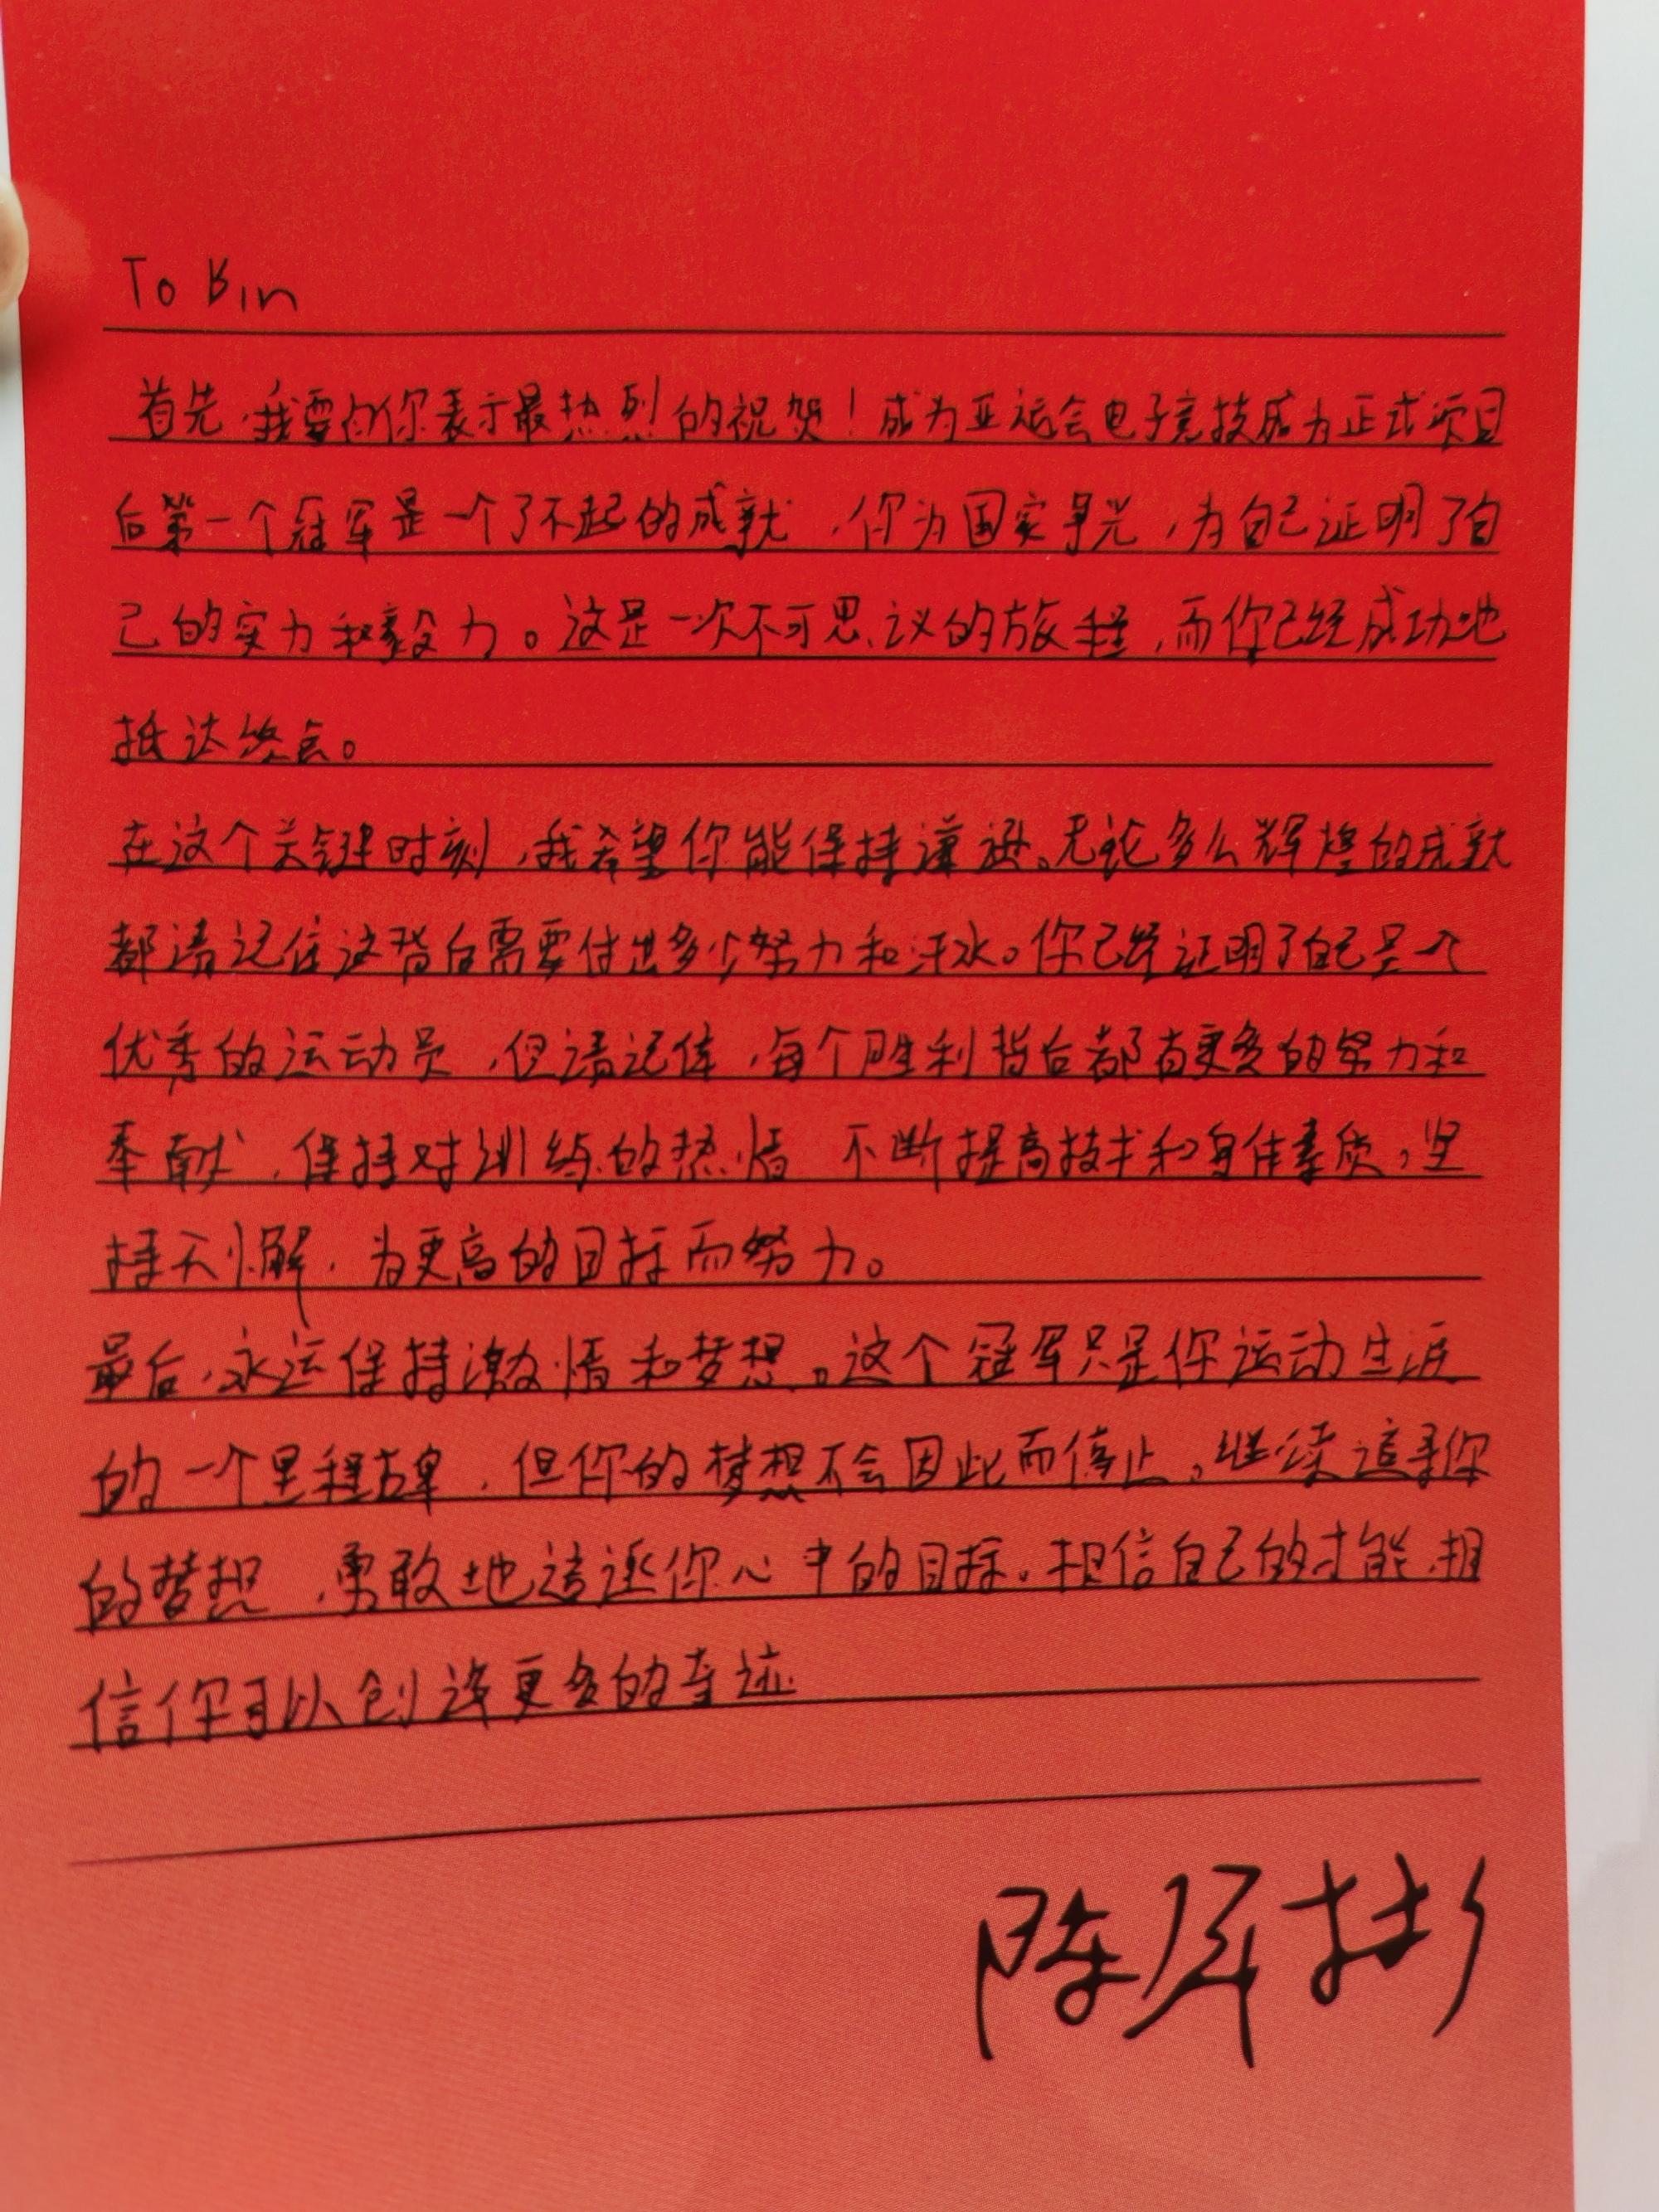 To Bin
首先,我要向你表示最热烈的祝贺!成为亚运会电子竞技成为正式项目
后第一个冠军是一个了不起的成就,你为国家争光,为自己证明了自
己的实力和毅力。这是一次不可思议的旅程,而你已经成功地
抵达终点。
在这个关键时刻,我希望你能保持谦逊。无论多么辉煌的成就
都请记住这背后需要付出多少努力和汗水。你已经证明了自己是个
优秀的运动员,但请记住,每个胜利背后都有更多的努力和
奉献,保持对训练的热情 不断提高技术和身体素质,坚
持不懈,为更高的目标而努力。
最后,永远保持激情和梦想。这个冠军只是你运动生涯
的一个里程碑,但你的梦想不会因此而停止。继续追寻你
的梦想,勇敢地追逐你心中的目标。相信自己的才能,相
信你可以创造更多的奇迹
陈泽彬